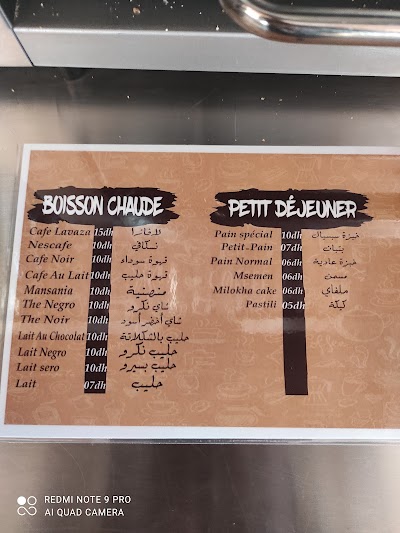 BOISSON CHAUDE
Cafe Lavaza 15dh لافازا
Nescafe 10dh نسكافي
Cafe Noir 10dh قهوة سوداء
Cafe Au Lait 10dh قهوة حليب
Mansania 10dh منصنية
The Negro 10dh شاي نكرو
The Noir 10dh شاي أخضر أسود
Lait Au Chocolat 10dh حليب بالشكلاتة
Lait Negro 10dh حليب نكرو
Lait sero 10dh حليب بسيرو
Lait 07dh حليب
PETIT DÉJEUNER
Pain spécial 10dh خبزة سبيسيال
Petit-Pain 07dh بتبان
Pain Normal 06dh خبزة عادية
Msemen 06dh مسمن
Milokha cake 06dh ملفاي
Pastili 05dh كيكة
REDMI NOTE 9 PRO
AI QUAD CAMERA